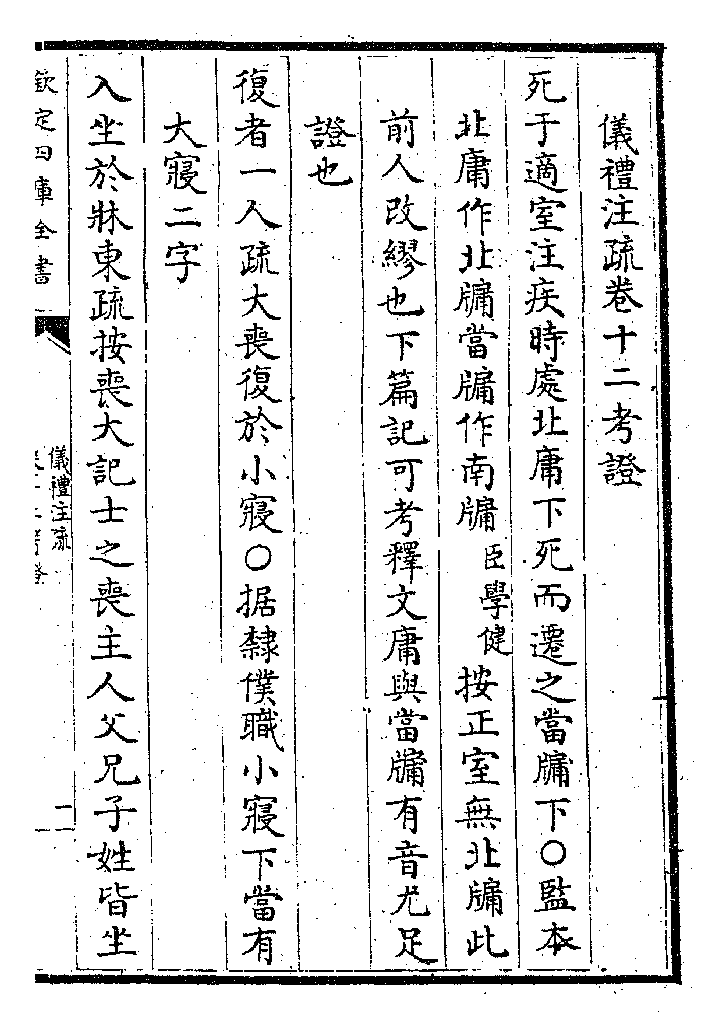 儀禮注疏卷十二考證
死于適室注疾時處北庸下死而遷之當牖下○監本
北庸作北牖當牖作南牖臣學健按正室無北牖此
前人改繆也下篇記可考釋文庸與當牖有音尤足
證也
復者一人疏大喪復於小寢○据隸僕職小寢下當有
大寢二字
入坐於牀東疏按喪大記士之喪主人父兄子姓皆坐
欽定四庫全書
儀禮注疏